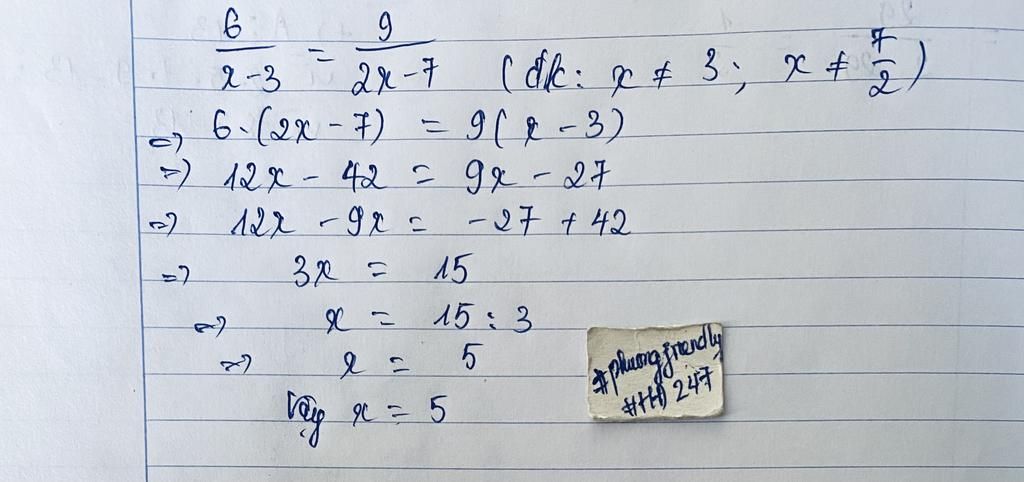 6/(x-3) = 9/(2x-7) (đk: x ≠ 3; x ≠ 7/2)
=> 6.(2x - 7) = 9(x - 3)
=> 12x - 42 = 9x - 27
=> 12x - 9x = -27 + 42
=> 3x = 15
=> x = 15 : 3
=> x = 5
Vậy x = 5
#phuongfriendly
#HĐ 247